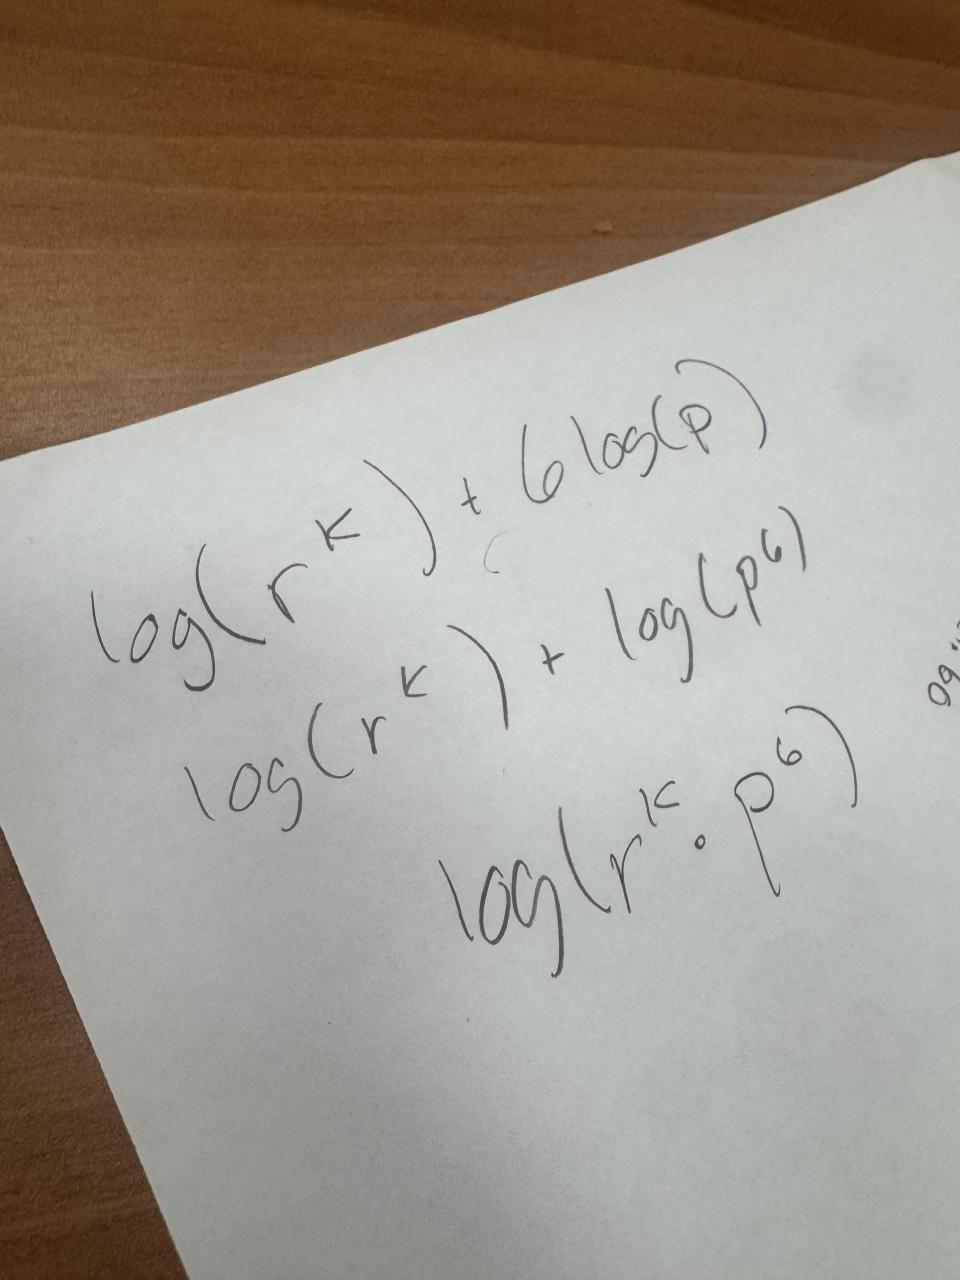 log(r^k) + 6log(p)
log(r^k) + log(p^6)
log(r^k · p^6)